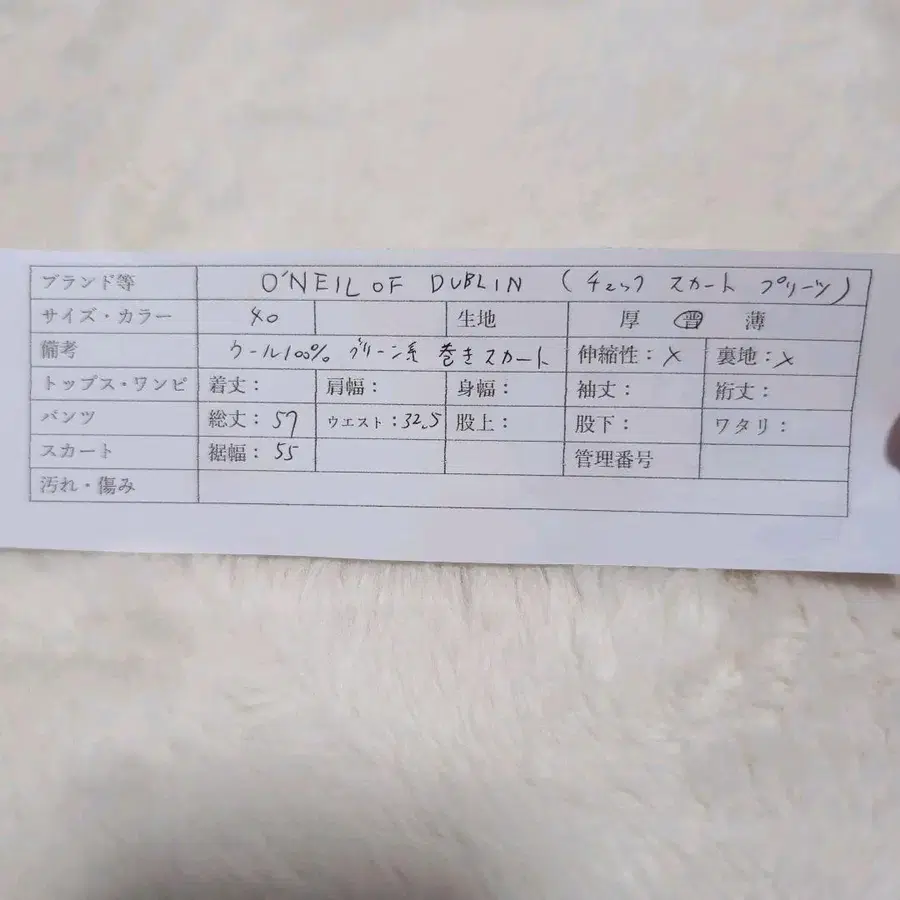 ブランド等 O'NEIL OF DUBLIN (チェック スカート プリーツ)
サイズ・カラー 40 生地 厚 普 薄
備考 ウール100% グリーン系 巻きスカート 伸縮性:× 裏地:×
トップス・ワンピ 着丈: 肩幅: 身幅: 袖丈: 裄丈:
パンツ 総丈:57 ウエスト:32.5 股上: 股下: ワタリ:
スカート 裾幅:55 管理番号
汚れ・傷み